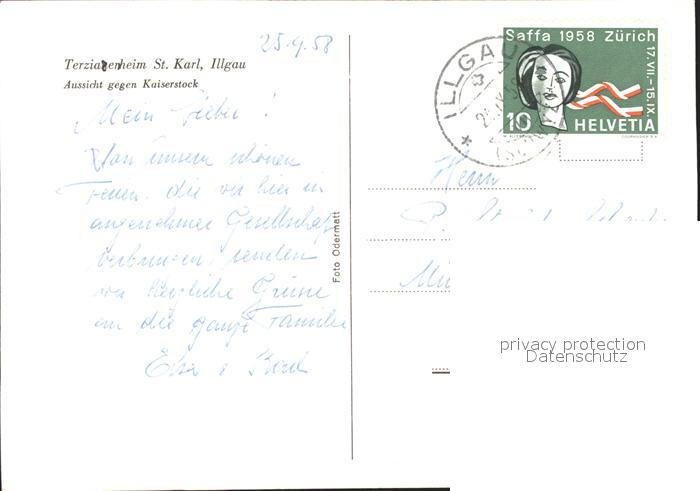 25.9.58
Terziarenheim St. Karl, Illgau
Aussicht gegen Kaiserstock
Mein Lieber!
Von unsern schönen
Ferien, die wir hier in
angenehmer Gesellschaft
verbringen, senden
wir herzliche Grüsse
an die ganze Familie
Foto Odermatt
Saffa 1958 Zürich
17.VII.–15.IX.
10 HELVETIA
ILLGAU
Herrn
privacy protection
Datenschutz